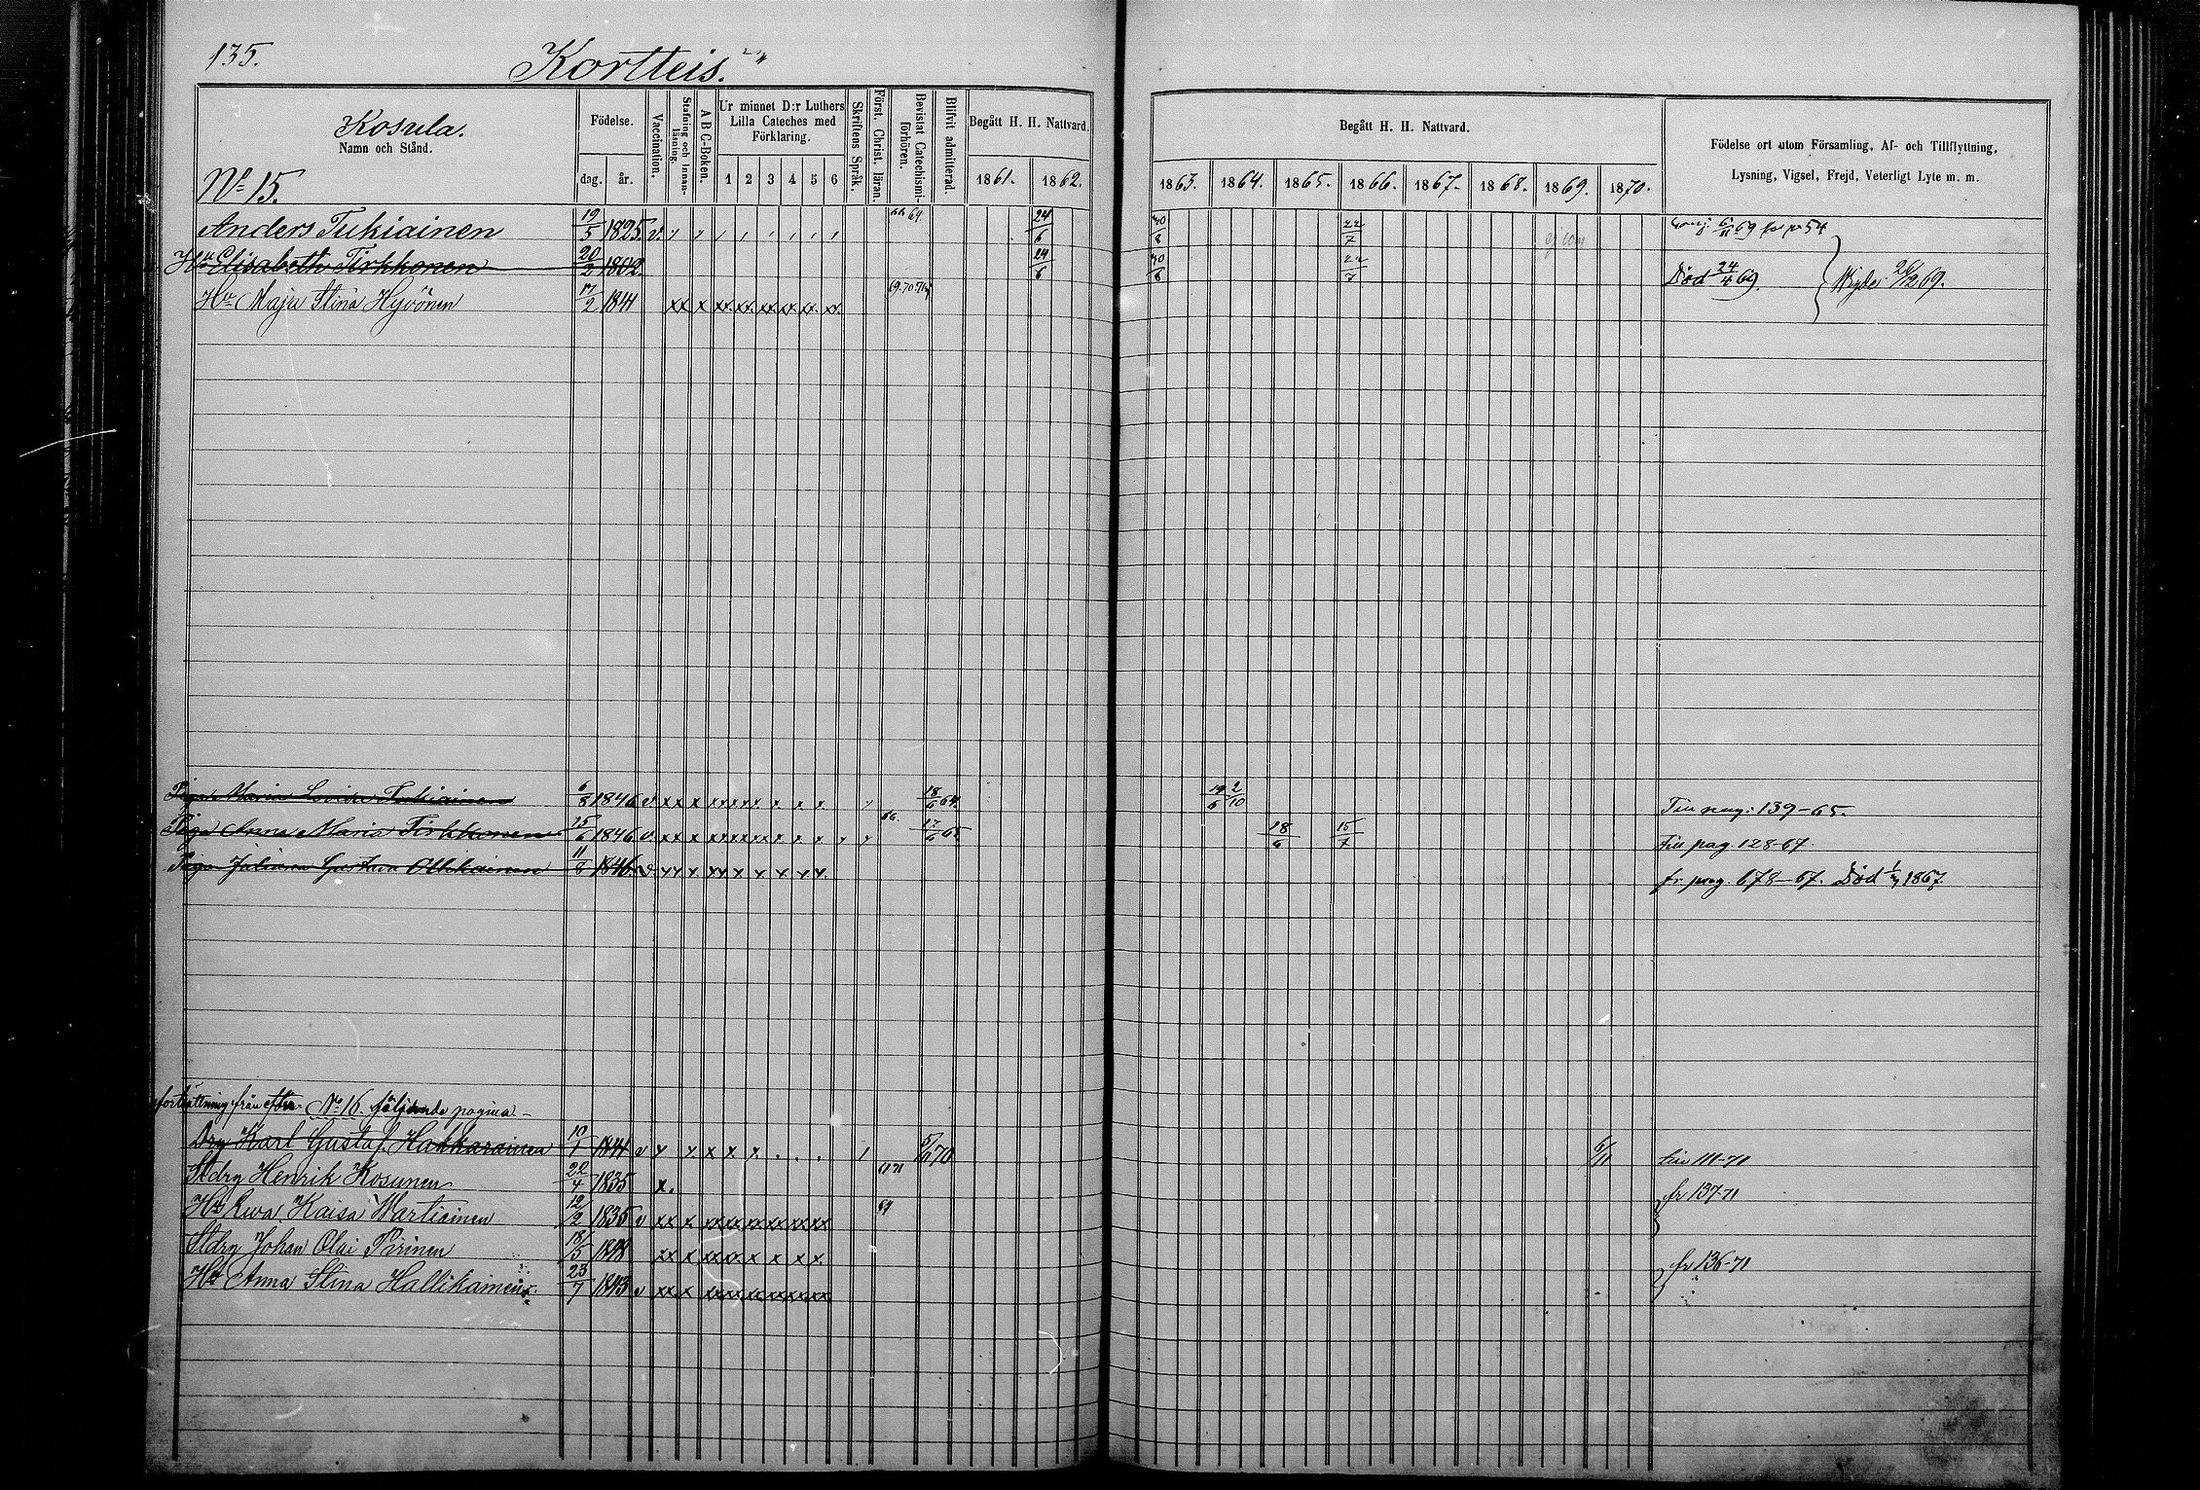 135.
Kortteis.
Kosula.
Namn och Stånd.
No 15.
Födelse.
dag. år.
Vaccination.
Stafning och Innanläsning.
A B C-Boken.
Ur minnet D:r Luthers Lilla Cateches med Förklaring.
1 2 3 4 5 6
Skriftens Språk.
Först. Christ. läran.
Bevistat Catechismiförhören.
Blifvit admitterad.
Begått H. H. Nattvard.
1861. 1862.
Begått H. H. Nattvard.
1863. 1864. 1865. 1866. 1867. 1868. 1869. 1870.
Födelse ort utom Församling, Af- och Tillflyttning,
Lysning, Vigsel, Frejd, Veterligt Lyte m. m.
Anders Tukiainen 19/5 1825 v. 64. 24/6 30/8 22/7 6/11 69 54
Hu Elisabeth Tirkkonen 20/2 1802 24/6 30/8 22/7 Död 24/4 69.
Hu Maja Stina Hyvönen 17/2 1844 xx x xx xx xx xx xx xx 69.70.71 Vigde 26/12 69.
Piga Maria Lovisa Tukiainen 6/8 1846 v xx x 18/6 64 19/6 2/10 Till pag: 139-65.
Piga Anna Maria Tirkkonen 15/6 1846 v. xx x 66. 17/6 65 18/6 15/7 Till pag 128-67.
Piga Juliana Gustava Ollikainen 11/8 1846 v fr pag. 678-67. Död 1867.
fortsättning från No 16. följande pagina
Drg Karl Gustaf Hakkarainen 10/1 1841 v 70 6/11 till 111-71
Stdrg Henrik Kosunen 22/4 1835 x. 71 fr 137-71
Hu Ewa Kaisa Wartiainen 12/2 1835 v xx x
Stdrg Johan Olai Pirinen 18/5 1848 xx x fr 136-71
Hu Anna Stina Hallikainen 23/7 1843 v xx x